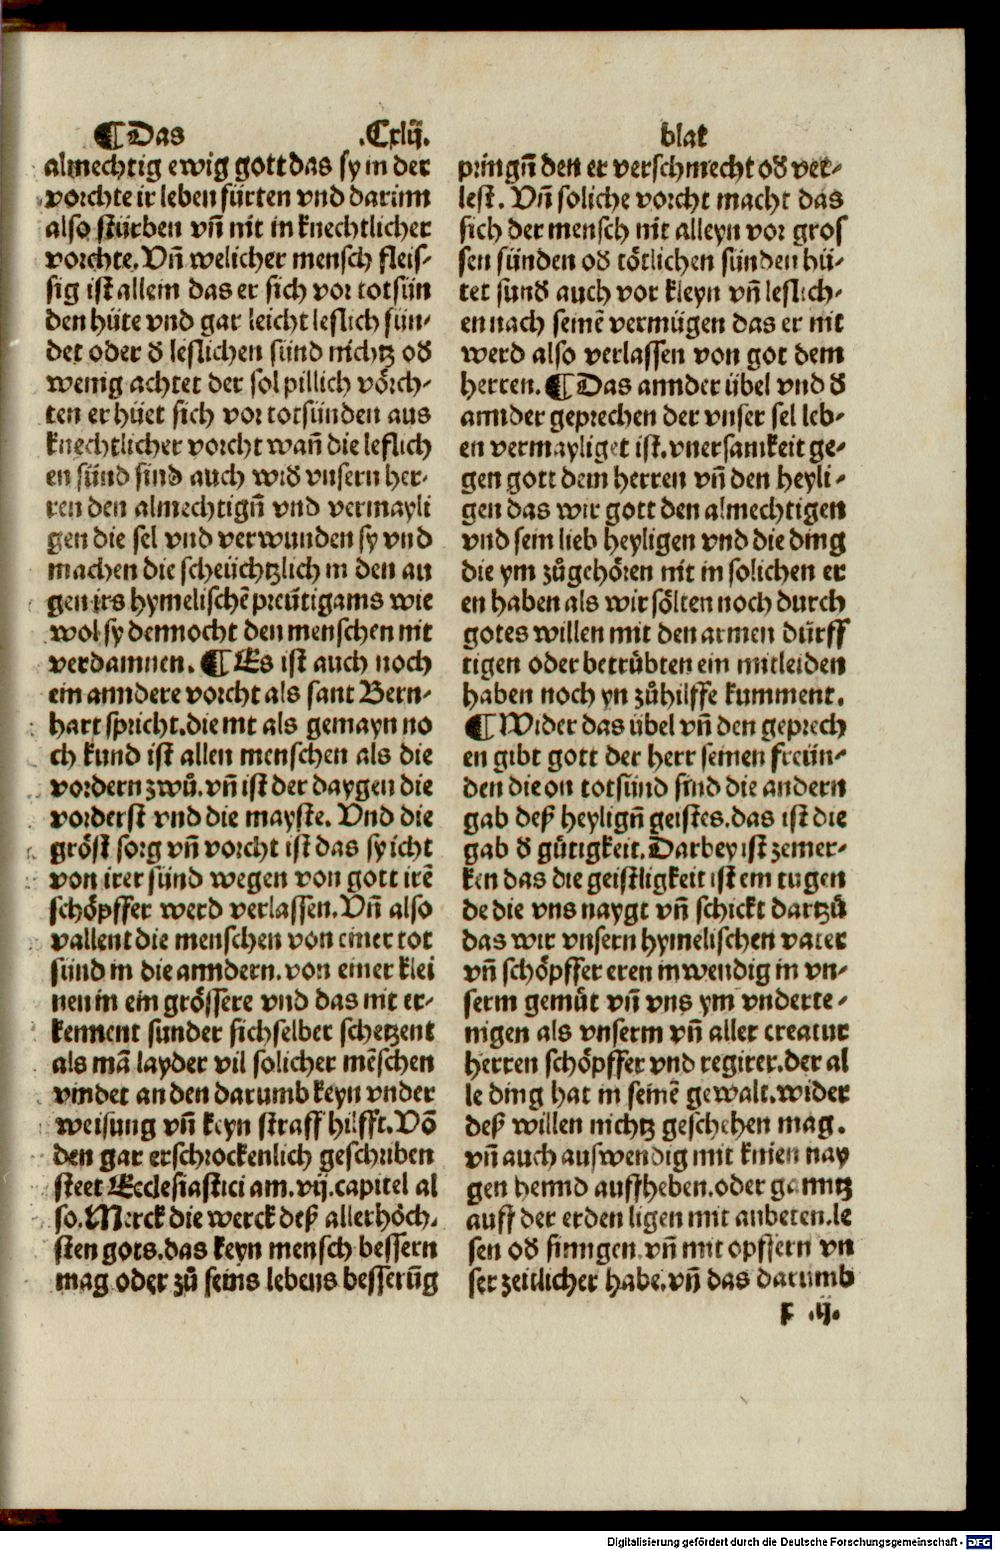 ¶ Das .Cxlij. blat
almechtig ewig gott das sy in der
vorchte ir leben fürten vnd darinn
also stürben vñ nit in knechtlicher
vorchte. Vñ welicher mensch fleis-
sig ist allein das er sich vor totsün
den hüte vnd gar leicht leslich sün-
det oder d leslichen sünd nichtz od
wenig achtet der sol pillich vörch-
ten er hüet sich vor totsünden aus
knechtlicher vorcht wañ die leslich
en sünd sind auch wid vnsern her-
ren den almechtigñ vnd vermayli
gen die sel vnd verwunden sy vnd
machen die scheüchtzlich in den au
gen irs hymelischē preütigams wie
wol sy dennocht den menschen nit
verdamnen. ¶ Es ist auch noch
ein anndere vorcht als sant Bern-
hart spricht. die nit als gemayn no
ch kund ist allen menschen als die
vordern zwů. vñ ist der daygen die
vorderst vnd die mayste. Vnd die
gröst sorg vñ vorcht ist das sy icht
von irer sünd wegen von gott irē
schöpffer werd verlassen. Vñ also
vallent die menschen von einer tot
sünd in die anndern. von einer klei
nen in ein grössere vnd das nit er-
kennent sunder sich selber schetzent
als mā layder vil solicher mēschen
vindet an den darumb keyn vnder
weisung vñ keyn straff hilfft. Vō
den gar erschrockenlich geschriben
steet Ecclesiastici am. vij. capitel al
so. Merck die werck deß allerhöch-
sten gots. das keyn mensch bessern
mag oder zů seins lebens besserūg
pringñ den er verschmecht od ver-
lest. Vñ soliche vorcht macht das
sich der mensch nit alleyn vor gros
sen sünden od tötlichen sünden hü-
tet sund auch vor kleyn vñ leslich-
en nach seinē vermügen das er nit
werd also verlassen von got dem
herren. ¶ Das annder übel vnd d
annder geprechen der vnser sel leb-
en vermayliget ist. vnersamkeit ge-
gen gott dem herren vñ den heyli-
gen das wir gott den almechtigen
vnd sein lieb heyligen vnd die ding
die ym zůgehören nit in solichen er
en haben als wir sölten noch durch
gotes willen mit den armen dürff
tigen oder betrübten ein mitleiden
haben noch yn zůhilffe kumment.
¶ Wider das übel vñ den geprech
en gibt gott der herr seinen freün-
den die on totsünd sind die andern
gab deß heyligñ geistes. das ist die
gab d gütigkeit. Darbey ist zemer-
ken das die geistligkeit ist ein tugen
de die vns naygt vñ schickt dartzů
das wir vnsern hymelischen vater
vñ schöpffer eren inwendig in vn-
serm gemüt vñ vns ym vnderte-
nigen als vnserm vñ aller creatur
herren schöpffer vnd regirer. der al
le ding hat in seinē gewalt. wider
deß willen nichtz geschehen mag.
vñ auch auswendig mit knien nay
gen hennd auffheben. oder ganntz
auff der erden ligen mit anbeten. le
sen od singen. vñ mit opffern vn
ser zeitlicher habe. vñ das darumb
.ij.
Digitalisierung gefördert durch die Deutsche Forschungsgemeinschaft - DFG